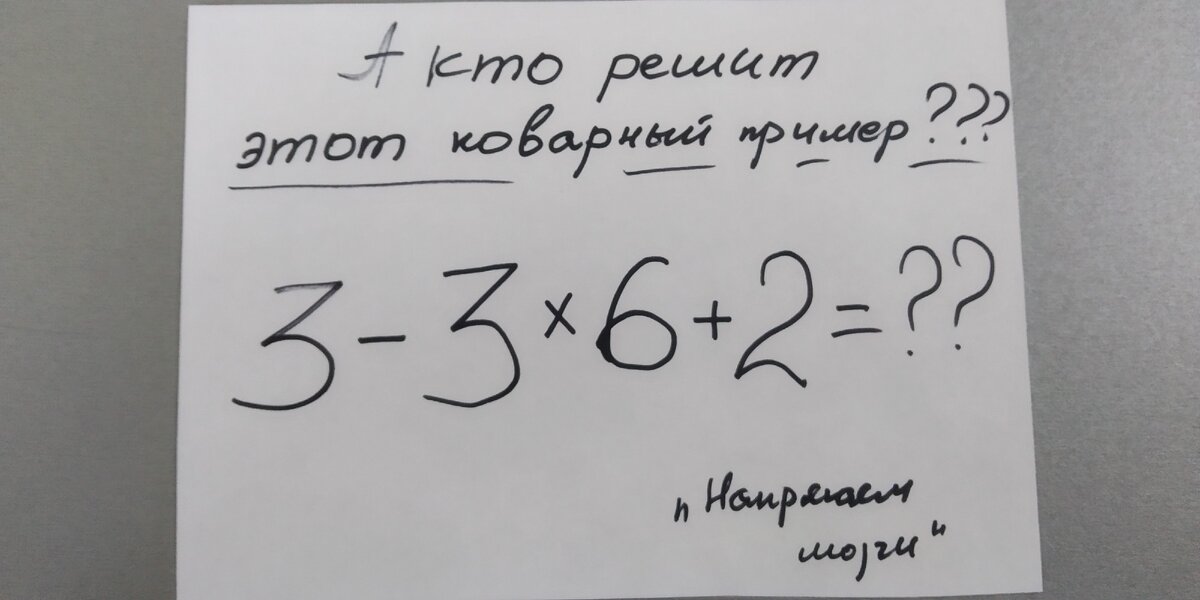 А кто решит
этот коварный пример???
3 - 3 × 6 + 2 = ??
"Напрягаем
мозги"